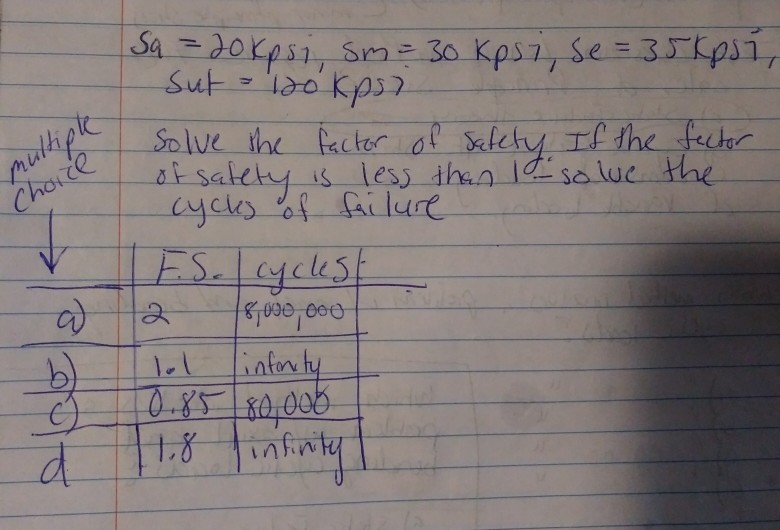 Sa = 20 Kpsi, Sm = 30 Kpsi, Se = 35 Kpsi,
Sut = 120 Kpsi
multiple choice
Solve the factor of safety. If the factor
of safety is less than 1 - solve the
cycles of failure
F.S. cycles
a) 2 8,000,000
b) 1.1 infinity
c) 0.85 80,000
d 1.8 infinity